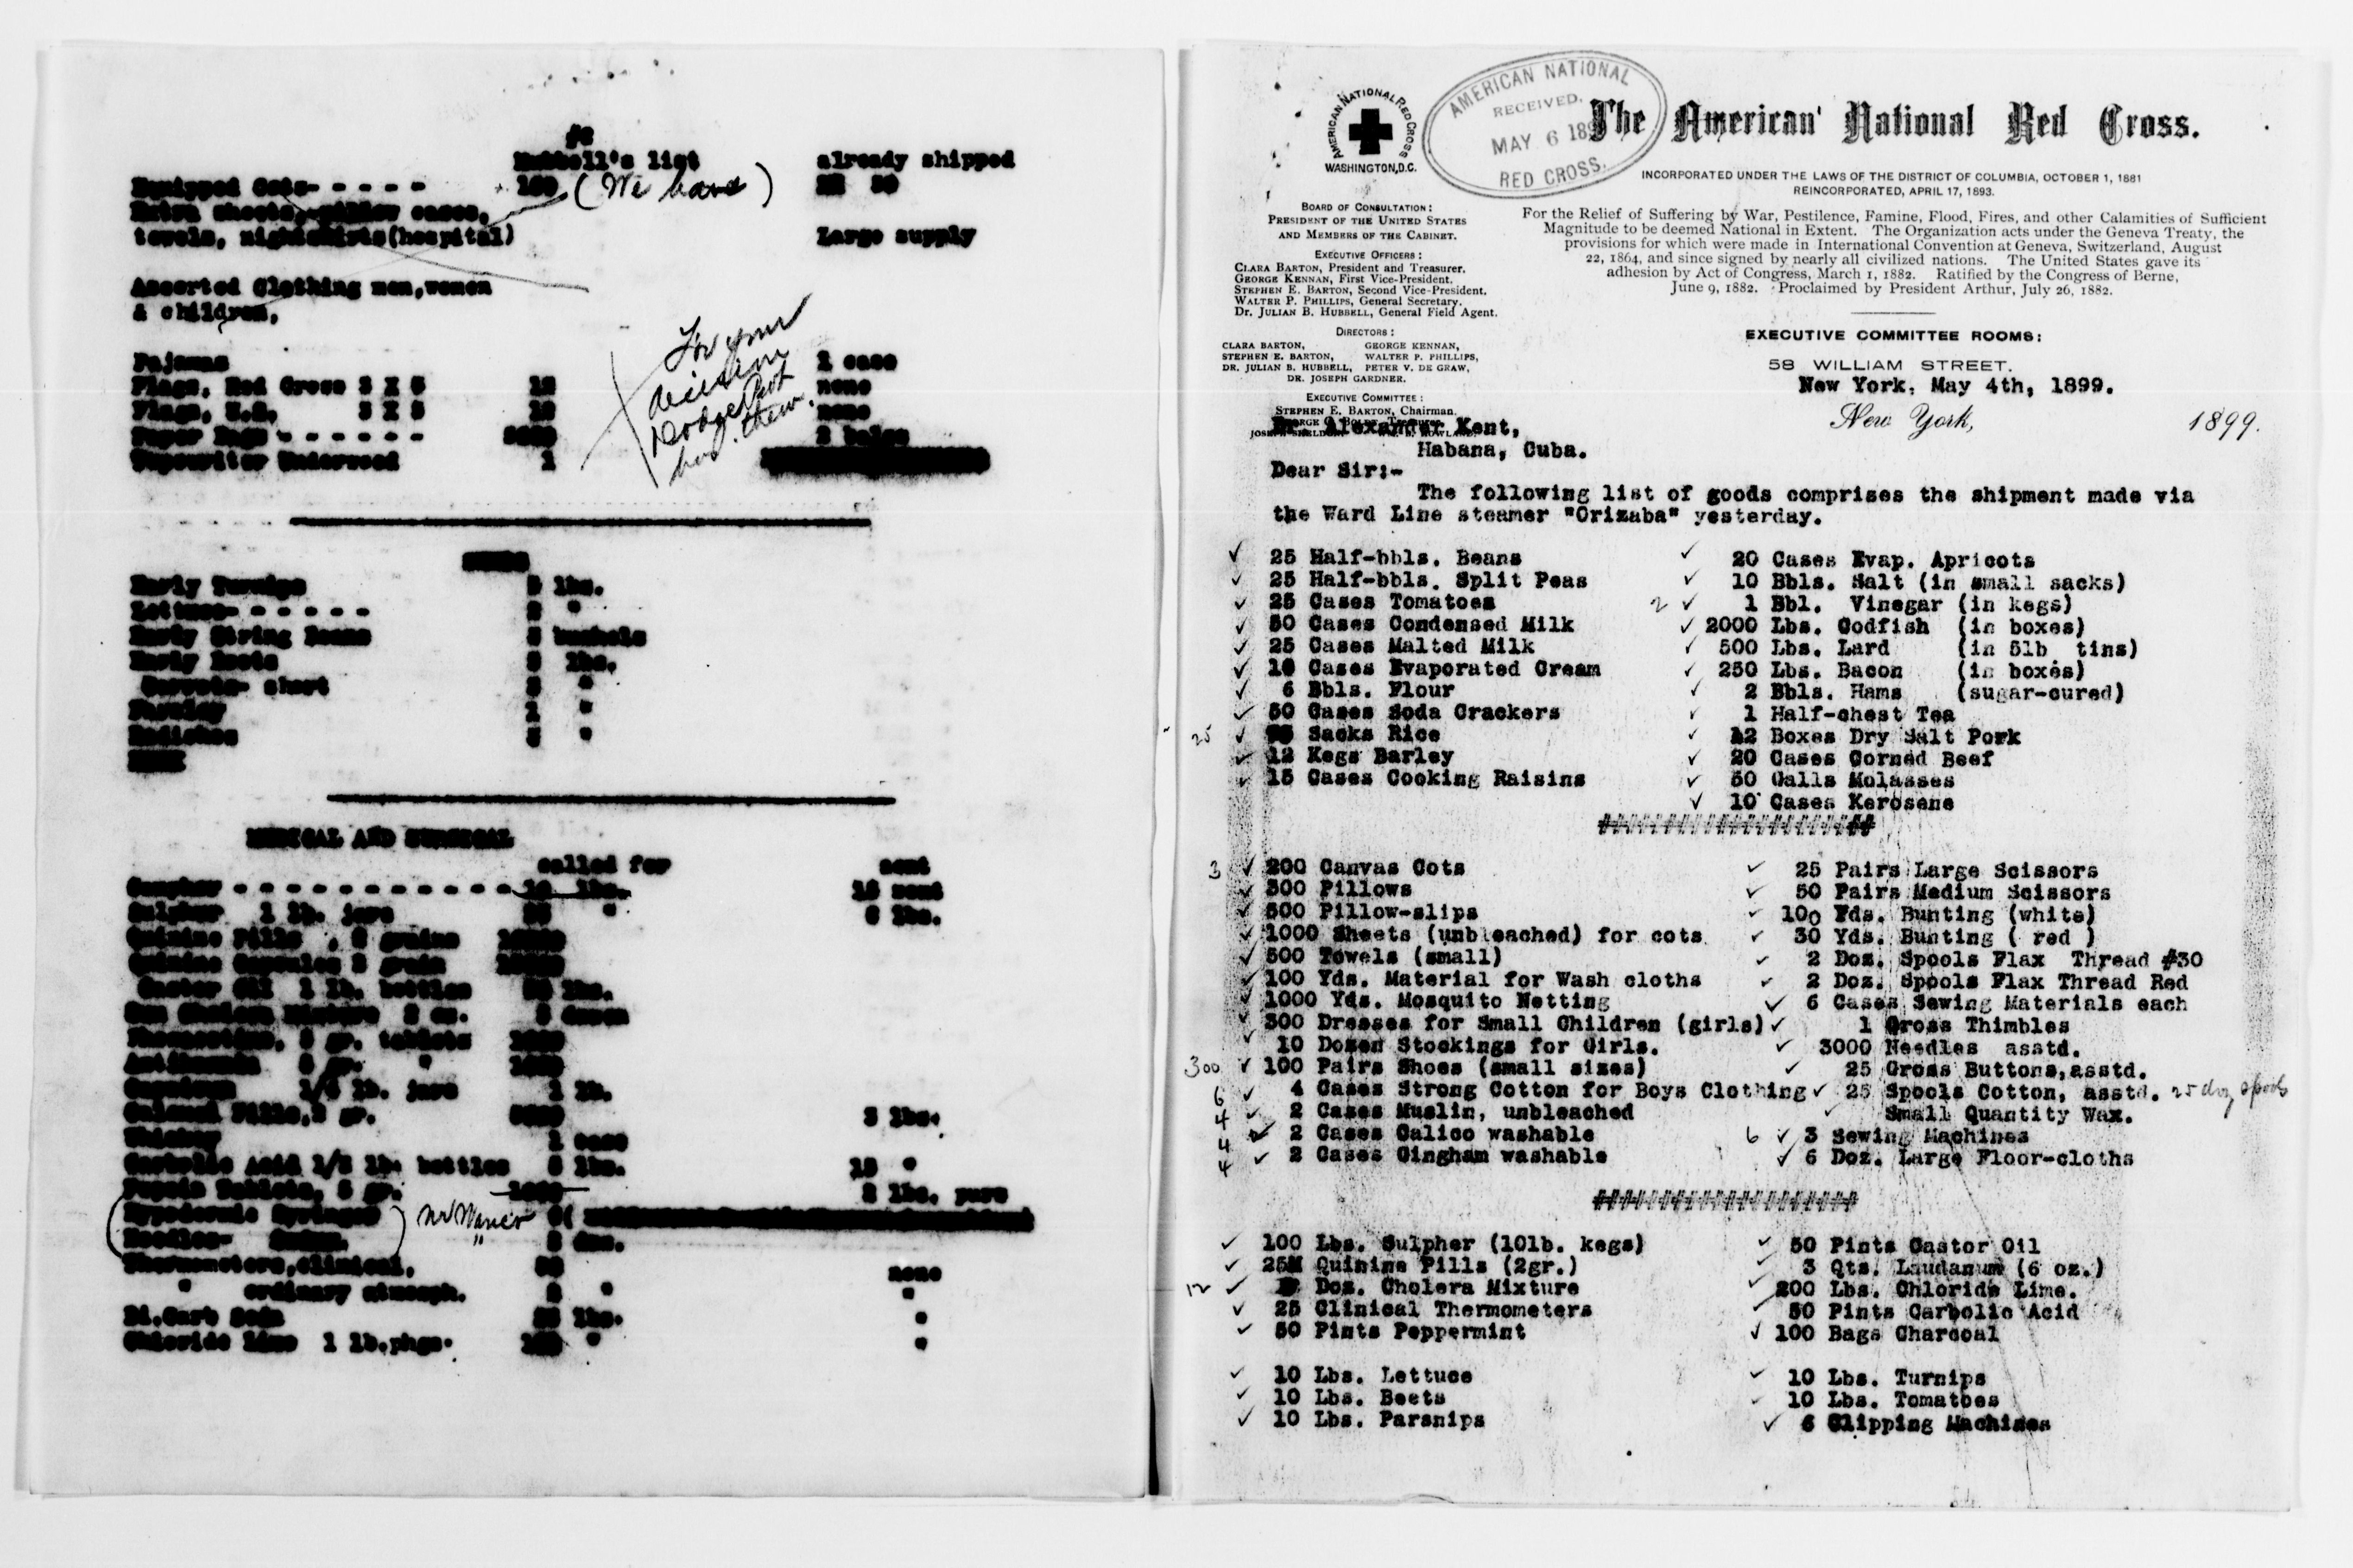 #2
Hubbell's list already shipped
Equipped Cots- - - - - 100 (We have) 50
Extra sheets, pillow cases,
towels, nightshirts(hospital) Large supply
Assorted Clothing men,women
& children,
Pajamas 1 case
Flags, Red Cross 3 X 5 12 none
Flags, U.S. 3 X 5 12 none
Paper Bags - - - - - - 2 bales
Typewriter Underwood 1
For your
decision
Dodge
has. them.
SEEDS
Early Turnips 5 lbs.
Lettuce- - - - - - 2 "
Early String Beans 2 bushels
Early Beets 5 lbs.
Carrots- short 2 "
Parsley 1 "
Radishes "
MEDICAL AND SURGICAL
called for sent
Camphor - - - - - - - - - - - 10 lbs. 15 sent
Sulpher 1 lb. jars " 6 lbs.
Quinine Pills , 2 grains
Quinine Capsules 2 grain
Castor Oil 1 lb. bottles 50 lbs.
Sun Cholera Mixture 2 oz. dozen
Phenacetine, 5 gr. tablets
Antikamnia 5 gr. "
lb. jars 1 lb.
Calomel Pills, gr. 3 lbs.
Whiskey 1 case
Carbolic Acid 1/2 lb. bottles 5 lbs. 15 "
Pepsin Tablets, 5 gr. 1000 2 lbs. pure
Hypodermic Syringes
Needles- doz.
Thermometers,clinical, none
" ordinary atmosph. "
Bi.Carb Soda lbs. "
Chloride Lime 1 lb.pkgs. 100 " "
AMERICAN NATIONAL RED CROSS
WASHINGTON,D.C.
AMERICAN NATIONAL
RECEIVED.
MAY 6 189
RED CROSS.
The American National Red Cross.
INCORPORATED UNDER THE LAWS OF THE DISTRICT OF COLUMBIA, OCTOBER 1, 1881
REINCORPORATED, APRIL 17, 1893.
For the Relief of Suffering by War, Pestilence, Famine, Flood, Fires, and other Calamities of Sufficient
Magnitude to be deemed National in Extent. The Organization acts under the Geneva Treaty, the
provisions for which were made in International Convention at Geneva, Switzerland, August
22, 1864, and since signed by nearly all civilized nations. The United States gave its
adhesion by Act of Congress, March 1, 1882. Ratified by the Congress of Berne,
June 9, 1882. Proclaimed by President Arthur, July 26, 1882.
BOARD OF CONSULTATION:
PRESIDENT OF THE UNITED STATES
AND MEMBERS OF THE CABINET.
EXECUTIVE OFFICERS:
CLARA BARTON, President and Treasurer.
GEORGE KENNAN, First Vice-President.
STEPHEN E. BARTON, Second Vice-President.
WALTER P. PHILLIPS, General Secretary.
Dr. JULIAN B. HUBBELL, General Field Agent.
DIRECTORS:
CLARA BARTON, GEORGE KENNAN,
STEPHEN E. BARTON, WALTER P. PHILLIPS,
DR. JULIAN B. HUBBELL, PETER V. DE GRAW,
DR. JOSEPH GARDNER.
EXECUTIVE COMMITTEE:
STEPHEN E. BARTON, Chairman.
EXECUTIVE COMMITTEE ROOMS:
58 WILLIAM STREET.
New York, May 4th, 1899.
New York, 1899.
Dr. Alexander Kent,
Habana, Cuba.
Dear Sir:-
The following list of goods comprises the shipment made via
the Ward Line steamer "Orizaba" yesterday.
✓ 25 Half-bbls. Beans ✓ 20 Cases Evap. Apricots
✓ 25 Half-bbls. Split Peas ✓ 10 Bbls. Salt (in small sacks)
✓ 25 Cases Tomatoes 2 ✓ 1 Bbl. Vinegar (in kegs)
✓ 50 Cases Condensed Milk ✓ 2000 Lbs. Codfish (in boxes)
✓ 25 Cases Malted Milk ✓ 500 Lbs. Lard (in 5lb tins)
✓ 10 Cases Evaporated Cream ✓ 250 Lbs. Bacon (in boxes)
✓ 6 Bbls. Flour ✓ 2 Bbls. Hams (sugar-cured)
✓ 50 Cases Soda Crackers ✓ 1 Half-chest Tea
25 ✓ Sacks Rice ✓ 12 Boxes Dry Salt Pork
✓ 12 Kegs Barley ✓ 20 Cases Corned Beef
✓ 15 Cases Cooking Raisins ✓ 50 Galls Molasses
✓ 10 Cases Kerosene
#####################
3 ✓ 200 Canvas Cots ✓ 25 Pairs Large Scissors
✓ 300 Pillows ✓ 50 Pairs Medium Scissors
✓ 500 Pillow-slips ✓ 100 Yds. Bunting (white)
✓ 1000 Sheets (unbleached) for cots ✓ 30 Yds. Bunting ( red )
✓ 500 Towels (small) ✓ 2 Doz. Spools Flax Thread #30
✓ 100 Yds. Material for Wash cloths ✓ 2 Doz. Spools Flax Thread Red
✓ 1000 Yds. Mosquito Netting ✓ 6 Cases Sewing Materials each
✓ 300 Dresses for Small Children (girls) ✓ 1 Gross Thimbles
✓ 10 Dozen Stockings for Girls. ✓ 3000 Needles asstd.
300 ✓ 100 Pairs Shoes (small sizes) ✓ 25 Gross Buttons,asstd.
6 ✓ 4 Cases Strong Cotton for Boys Clothing ✓ 25 Spools Cotton, asstd. 25 doz spools
4 ✓ 2 Cases Muslin, unbleached ✓ Small Quantity Wax.
4 ✓ 2 Cases Calico washable 6 ✓ 3 Sewing Machines
4 ✓ 2 Cases Gingham washable ✓ 6 Doz. Large Floor-cloths
####################
✓ 100 Lbs. Sulpher (10lb. kegs) ✓ 50 Pints Castor Oil
✓ 25M Quinine Pills (2gr.) ✓ 3 Qts. Laudanum (6 oz.)
12 ✓ Doz. Cholera Mixture ✓ 200 Lbs. Chloride Lime.
✓ 25 Clinical Thermometers ✓ 50 Pints Carbolic Acid
✓ 50 Pints Peppermint ✓ 100 Bags Charcoal
✓ 10 Lbs. Lettuce ✓ 10 Lbs. Turnips
✓ 10 Lbs. Beets ✓ 10 Lbs. Tomatoes
✓ 10 Lbs. Parsnips ✓ 6 Clipping Machines